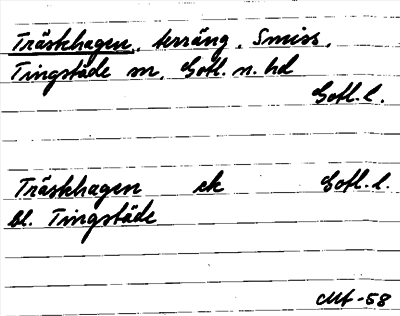 Träskhagen, terräng, Smiss,
Tingstäde sn, Gotl. n. hd
Gotl. l.
Träskhagen ek Gotl. l.
bl. Tingstäde
-58